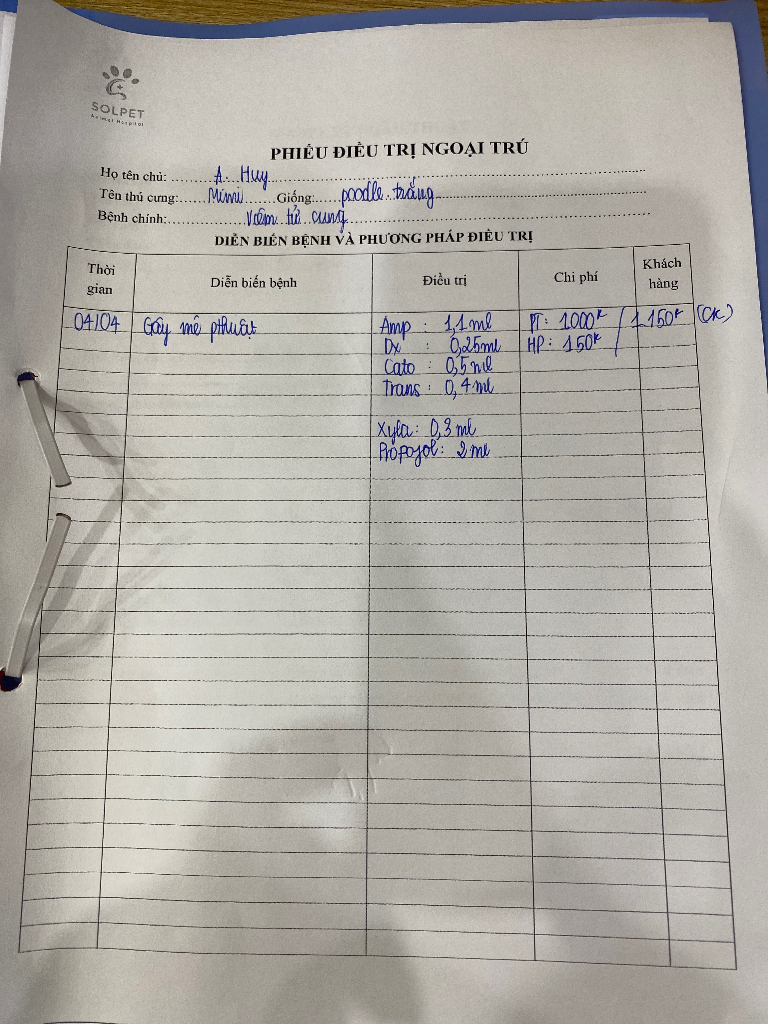 SOLPET
Animal Hospital
PHIẾU ĐIỀU TRỊ NGOẠI TRÚ
Họ tên chủ: A. Huy
Tên thú cưng: Mimi Giống: poodle trắng
Bệnh chính: Viêm tử cung
DIỄN BIẾN BỆNH VÀ PHƯƠNG PHÁP ĐIỀU TRỊ
Thời gian Diễn biến bệnh Điều trị Chi phí Khách hàng
04/04 Gây mê pthuật Amp : 1,1 ml PT: 1000k / 1.150k (CK)
Dx : 0,25ml HP: 150k
Cato : 0,5 ml
Trans : 0,4 ml
Xyla: 0,3 ml
Propofol: 2 ml